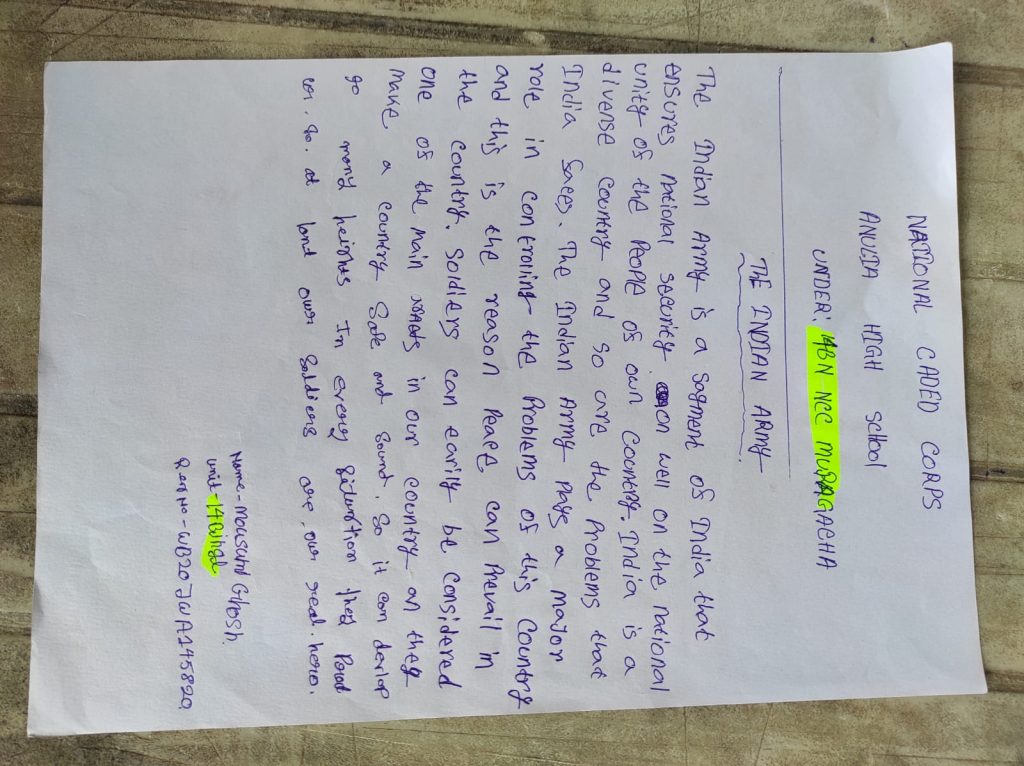 NATIONAL CADED CORPS
ANULIA HIGH School
UNDER: 14BN NCC MURAGACHA
THE INDIAN ARMY.
The Indian Army is a sagment of India that
ensures national security on well on the national
unity of the People of own Country. India is a
diverse country and so are the Problems that
India faces. The Indian Army Pays a major
role in controiling the Problems of this Country
and this is the reason Peace can Prevail in
the country. Soldiers can earily be considered
one of the main in our country on they
make a country Safe and Sound. So it can devlop
go many heights In every Situation they
can. So. at land over Soldiers are our real. hero.
Name- Mousumi Ghosh.
unit- 14
Reg No- WB20JWA145820